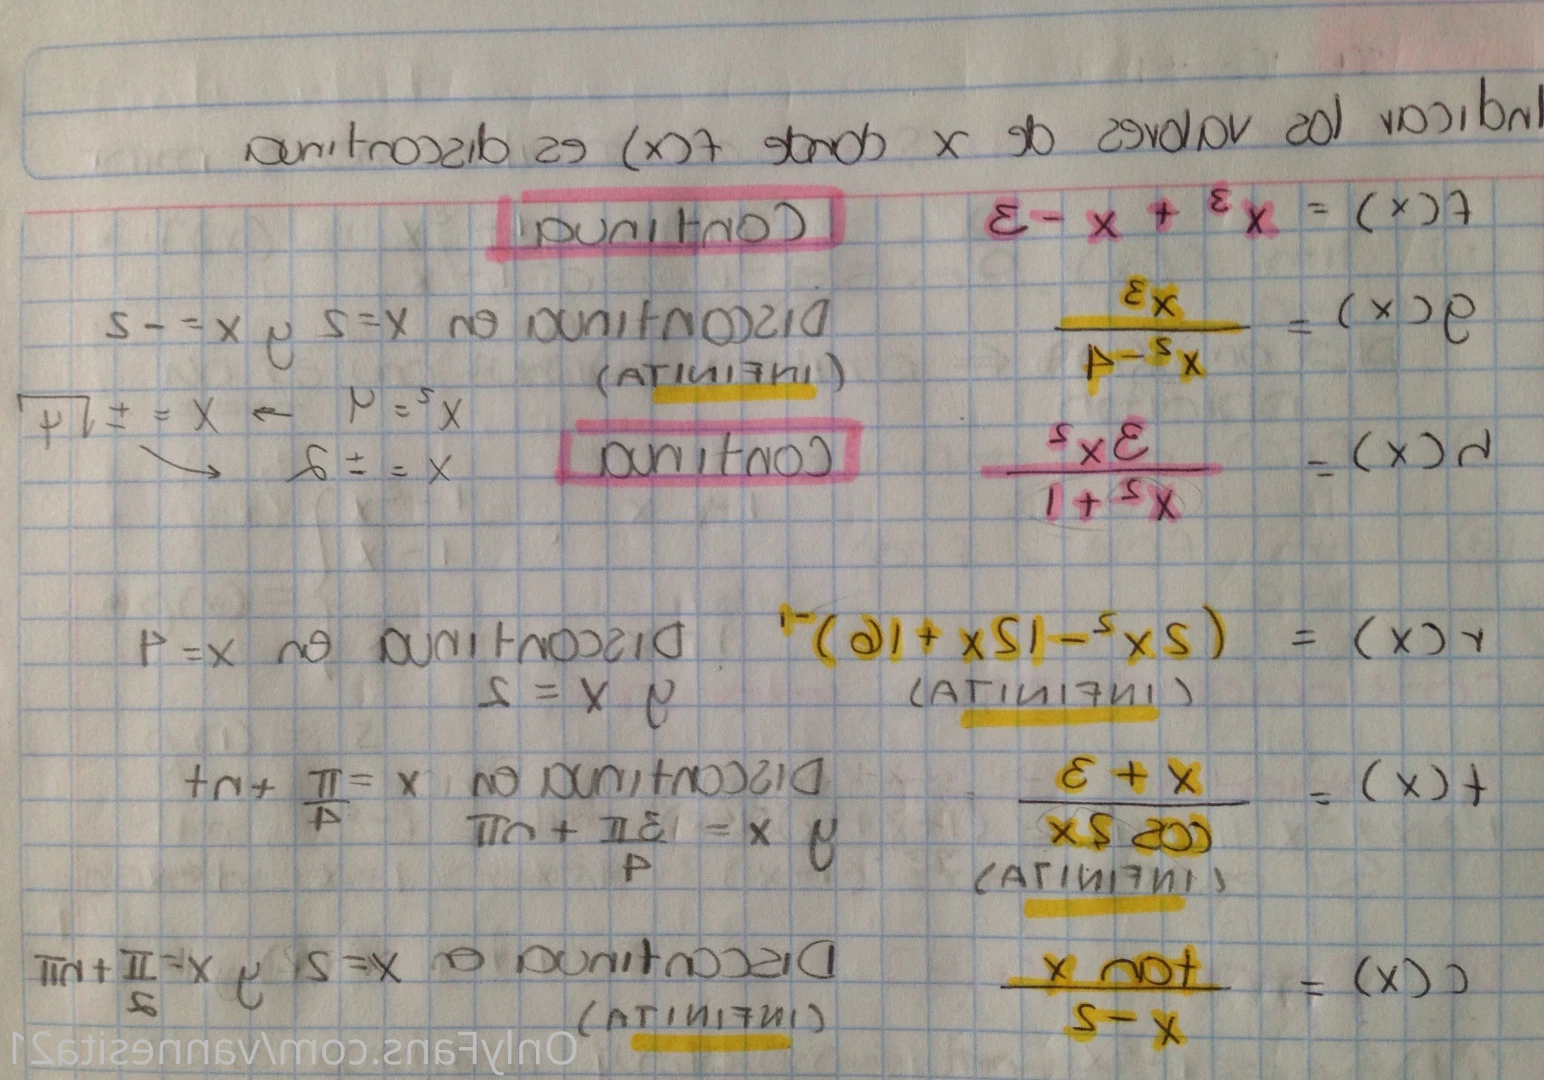 Indicar los valores de x donde f(x) es discontinua
f(x) = x³ + x - 3 Continua
g(x) = x³ / x² - 4 Discontinua en x=2 y x= -2
(INFINITA)
x² = 4 → x = ± √4
h(x) = 3x² / x² + 1 Continua x = ± 2
r(x) = (2x² - 12x + 16)⁻¹ Discontinua en x=4
(INFINITA) y x = 2
t(x) = x + 3 / cos 2x Discontinua en x = π/4 + nπ
y x = 3π/4 + nπ
(INFINITA)
c(x) = tan x / x - 2 Discontinua en x=2 y x= π/2 + nπ
(INFINITA)
OnlyFans.com/vannesita21